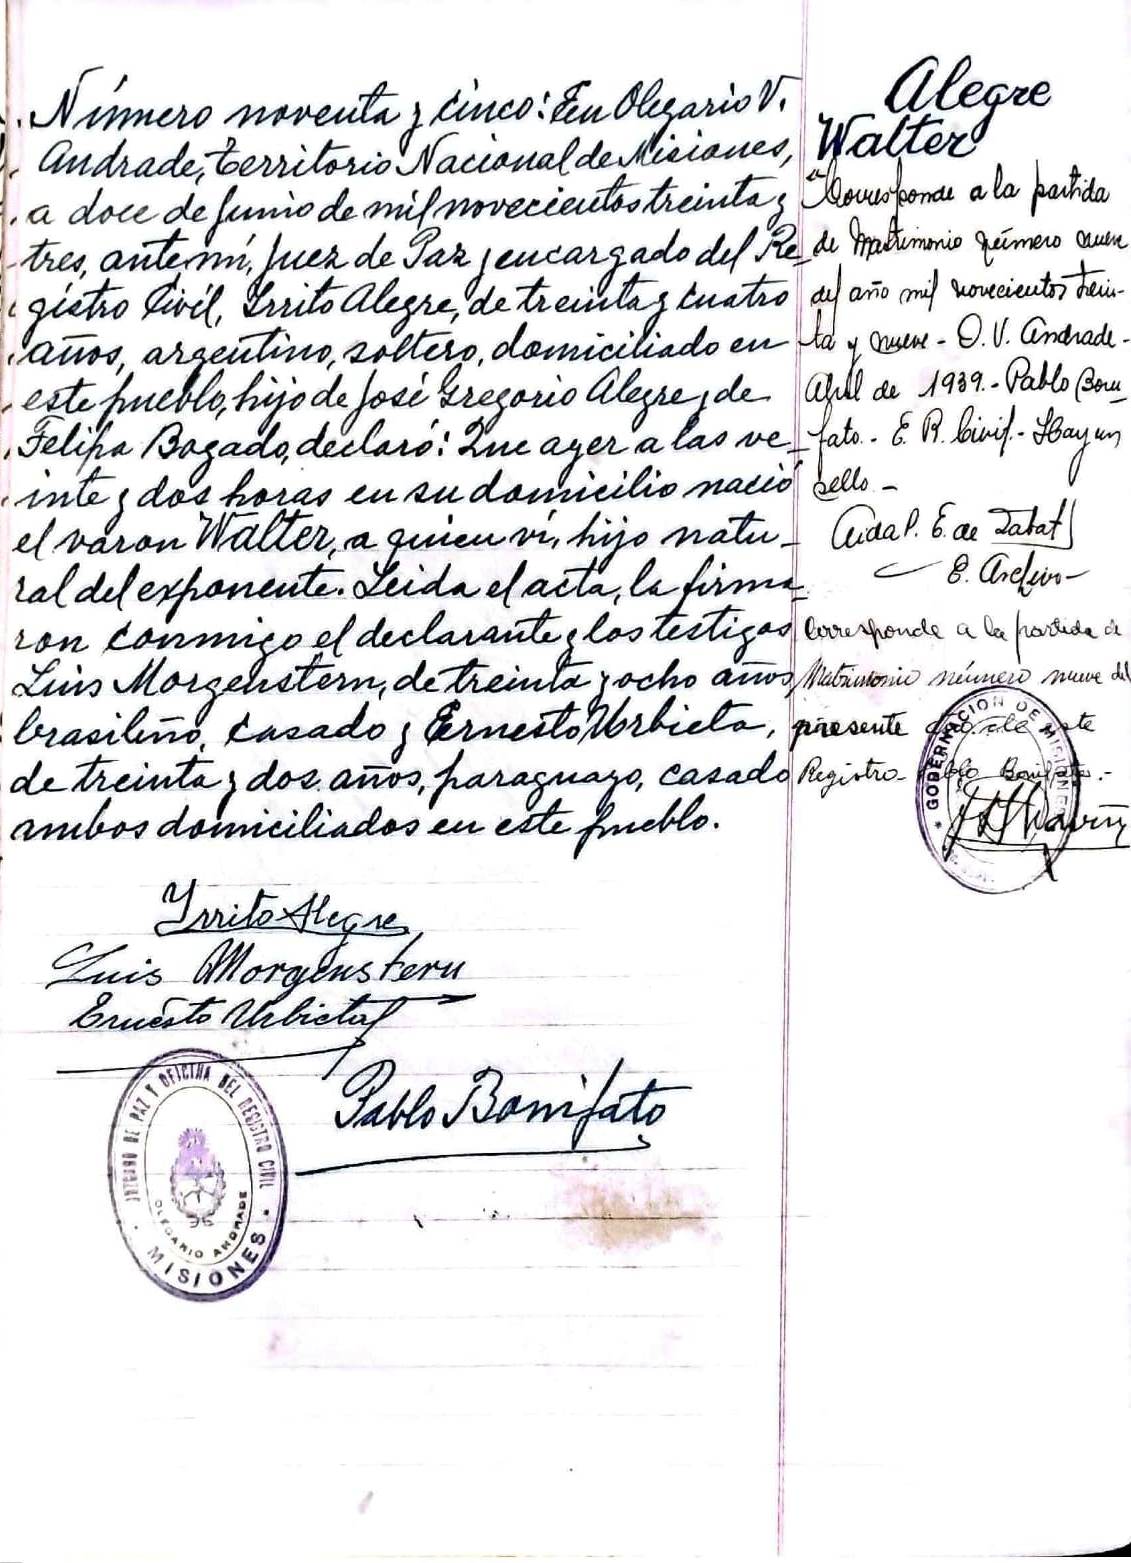 Número noventa y cinco: En Olegario V.
Andrade, Territorio Nacional de Misiones,
a doce de Junio de mil novecientos treinta y
tres, ante mí, Juez de Paz y encargado del Re-
gistro Civil, Irrito Alegre, de treinta y cuatro
años, argentino, soltero, domiciliado en
este pueblo, hijo de José Gregorio Alegre y de
Felipa Bogado, declaró: Que ayer a las ve-
inte y dos horas en su domicilio nació
el varon Walter, a quien vi, hijo natu-
ral del exponente. Leida el acta, la firma-
ron conmigo el declarante y los testigos
Luis Morgenstern, de treinta y ocho años,
brasileño, casado y Ernesto Urbieta,
de treinta y dos años, paraguayo, casado
ambos domiciliados en este pueblo.
Irrito Alegre
Luis Morgenstern
Ernesto Urbieta
Pablo Bonifato
JUZGADO DE PAZ Y OFICINA DEL REGISTRO CIVIL
OLEGARIO ANDRADE
MISIONES
Alegre
Walter
"Corresponde a la partida
de Matrimonio número nueve
del año mil novecientos trein-
ta y nueve - O. V. Andrade -
Abril de 1939. - Pablo Boni-
fato. - E. R. Civil. - Hay un
sello. -
Aida P. E. de
E. Archivo -
Corresponde a la partida de
Matrimonio número nueve del
presente año de este
Registro - Pablo Bonifato. -
GOBERNACION DE MISIONES